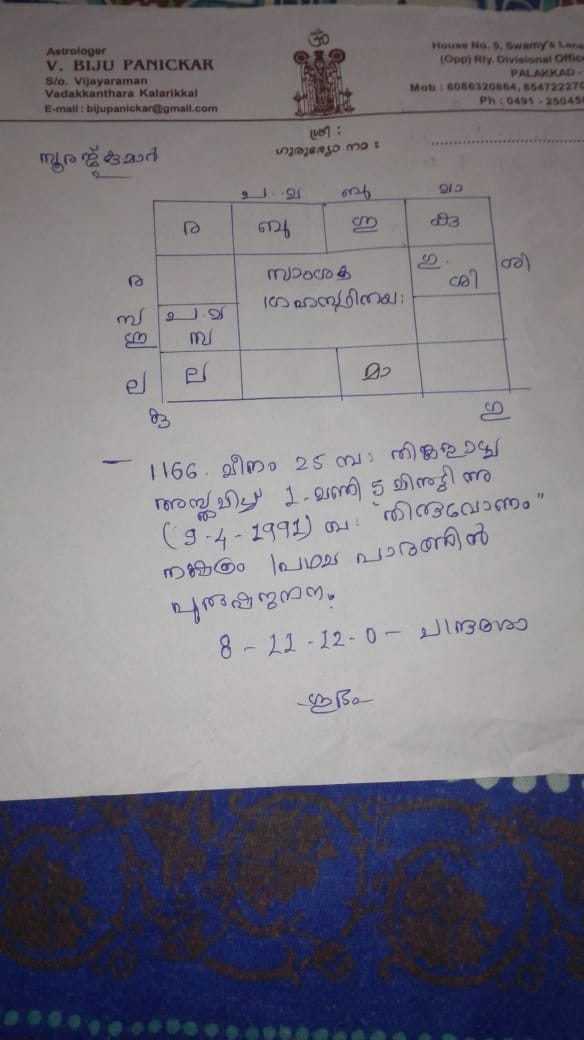 Astrologer
V. BIJU PANICKAR
S/o. Vijayaraman
Vadakkanthara Kalarikkal
E-mail : bijupanickar@gmail.com
House No. 5, Swamy's Lane
(Opp) Rly. Divisional Offic
PALAKKAD -
Mob : 8086320864, 854722270
Ph : 0491 - 250456
ശ്രീ :
ഗുരുഭ്യോ നമ :
സൂരജ്കുമാർ
ച . ല ബു മാ
ര ബു ഇ കു
ര ഗു . ശി ശി
സാംശക
ഗ്രഹസ്ഥിതയ:
സ ച . ല
ഇ സ
ല ല മാ
കു ഗു
1166 . മീനം 25 തിങ്കളാഴ്ച
അസ്തമിച്ച് 1 - മണി 5 മിനുട്ടിന്
(9-4-1991) "തിരുവോണം"
നക്ഷത്രം പ്രഥമ പാദത്തിൽ
പുരുഷജനനം.
8 - 11 - 12 - 0 - ചന്ദ്രദശാ
ശുഭം